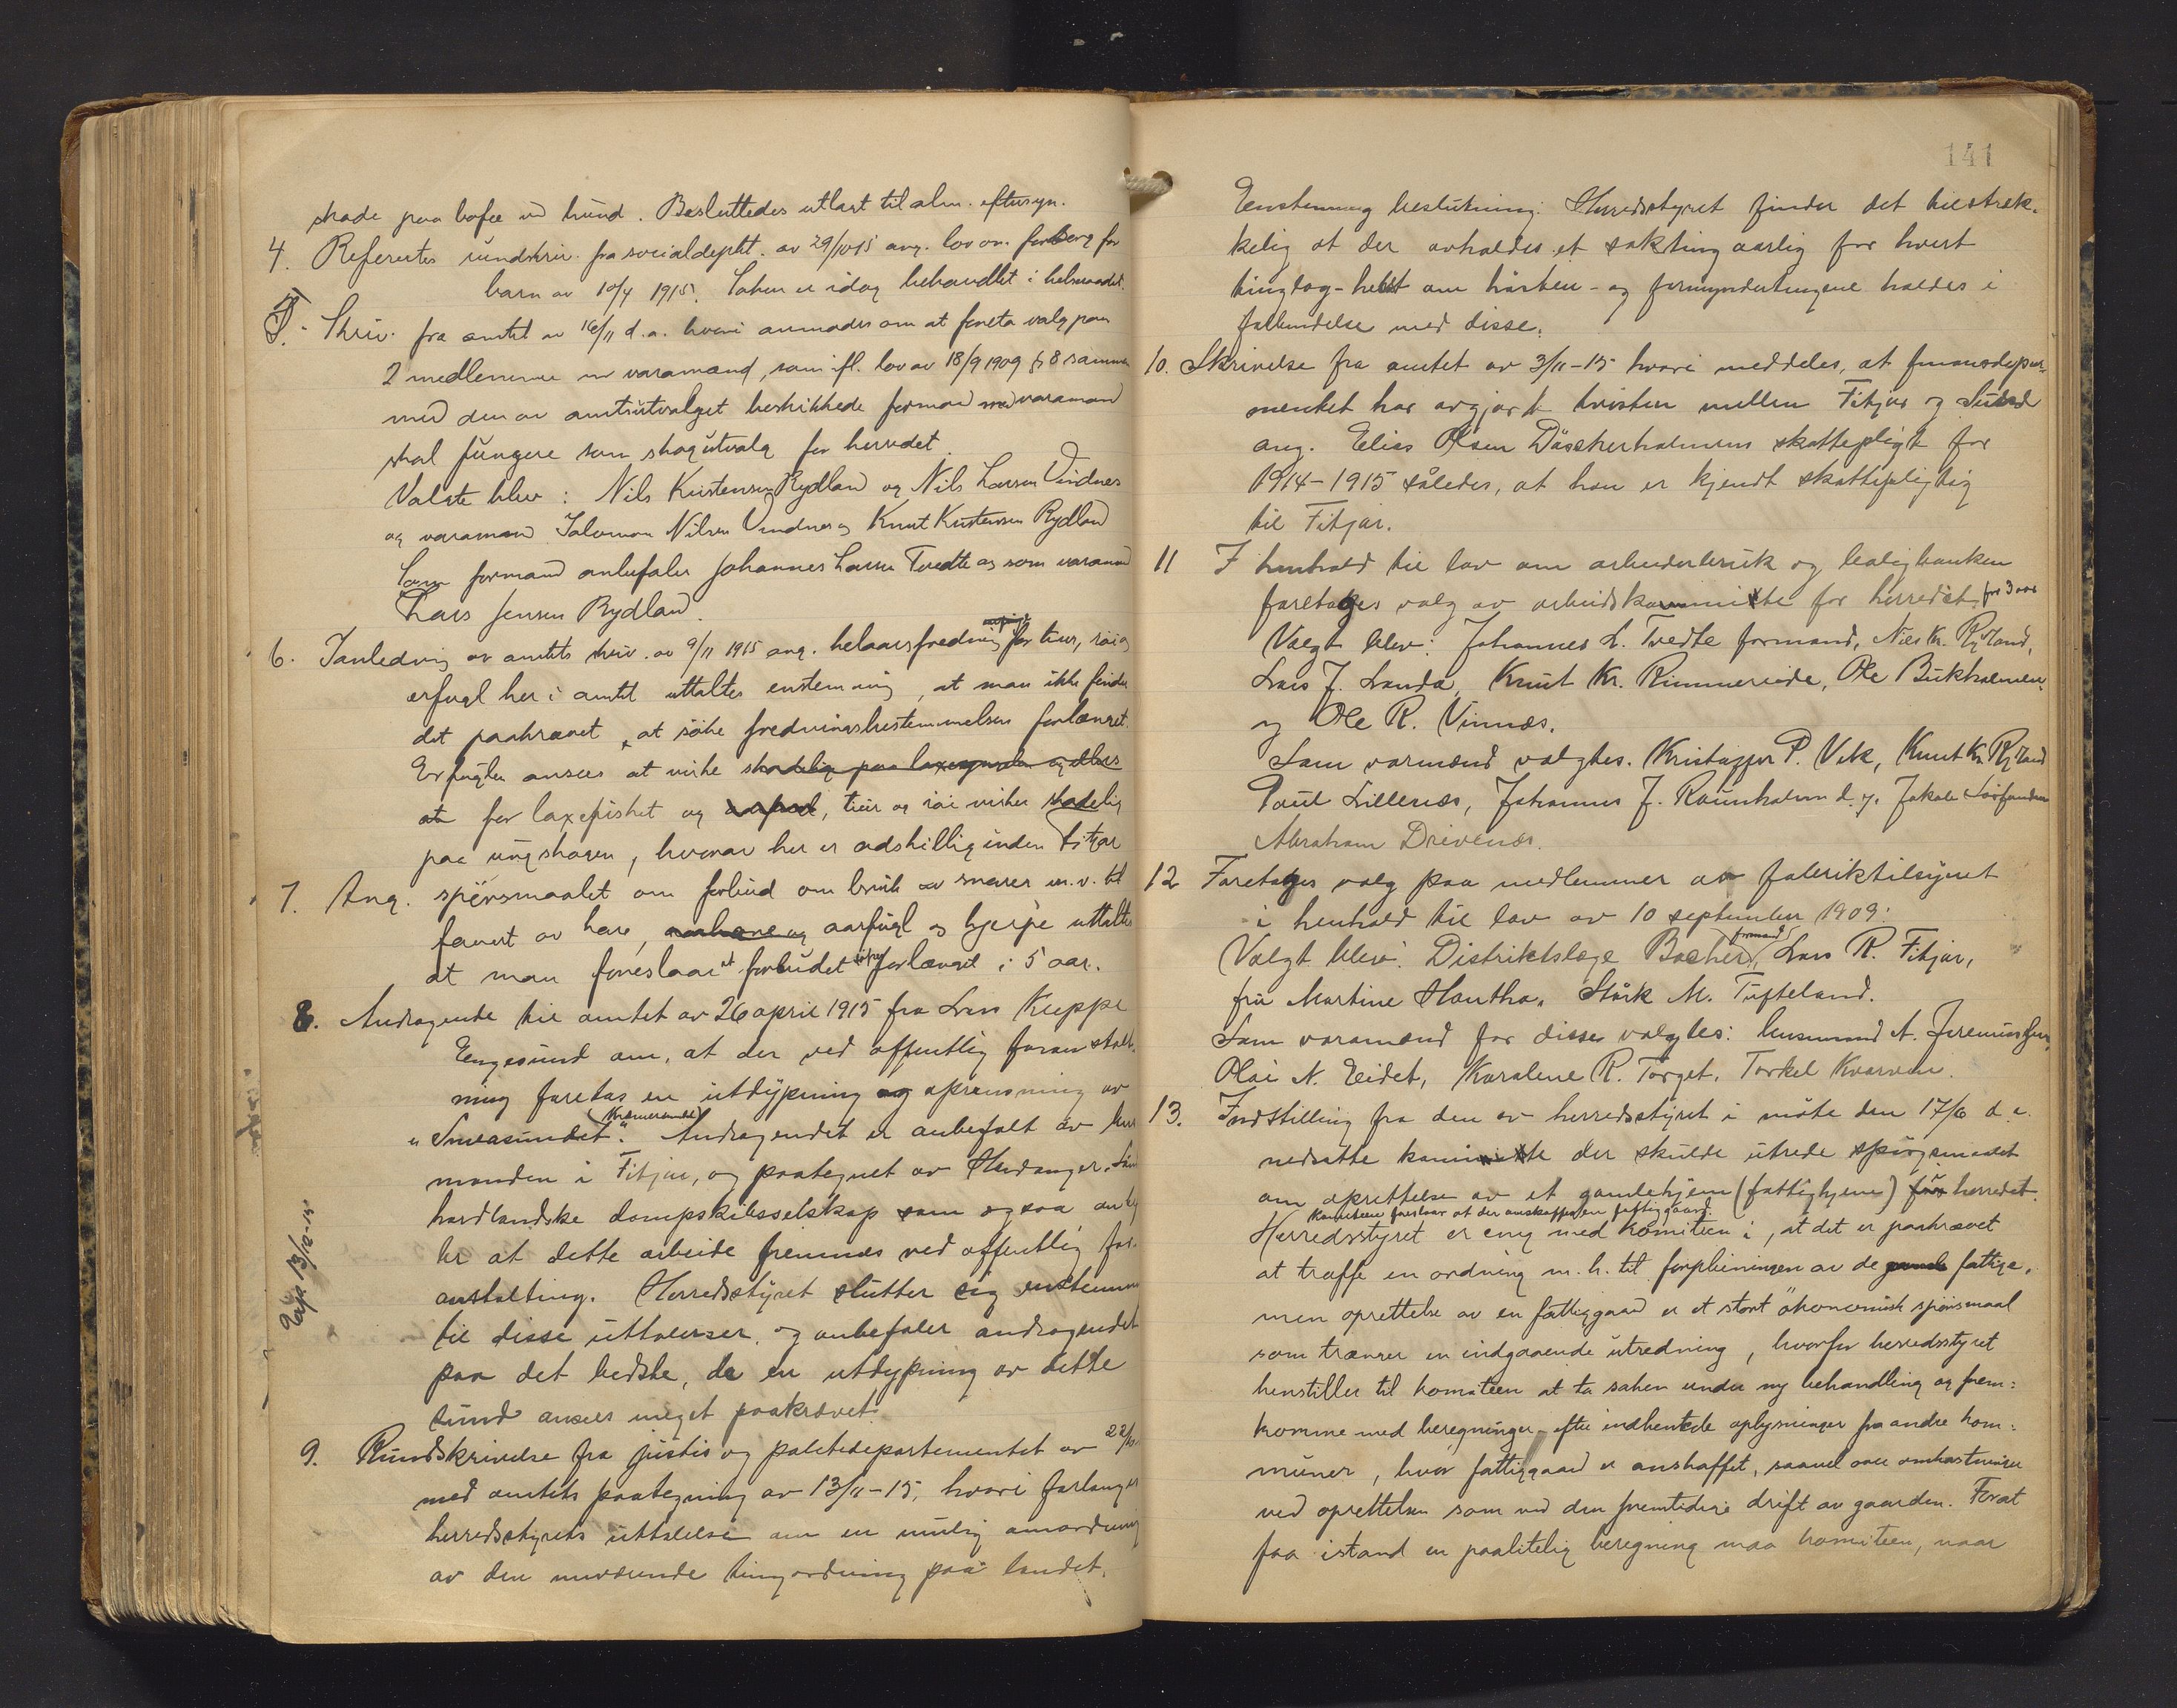 skade paa bofæ ved hund. Besluttedes utlagt til alm. eftersyn.
4. Referertes rundskriv. fra socialdeptet. av 29/10 15 ang. lov om forsorg for
barn av 10/4 1915. Saken er idag behandlet i helseraadet.
5. Skriv. fra amtet av 16/11 d.a. hvori anmodes om at foreta valg paa
2 medlemmer m varamænd, som ifl. lov av 18/9 1909 § 8 sammen
med den av amtsutvalget beskikkede formand med varamand
skal fungere som skogutvalg for herredet.
Valgte blev: Nils Kristensen Rydland og Nils Larsen Vindnes
og varamænd Salomon Nilsen Vindnes og Knut Kristensen Rydland
Som formand anbefales Johannes Larsen Tvedte og som varamand
Lars Jensen Rydland.
6. I anledning av amtets skriv. av 9/11 1915 ang. helaarsfredning for tiur, røi og
ærfugl her i amtet uttaltes enstemmig, at man ikke finder
det paakrævet, at søke fredningsbestemmelsen forlænget.
Erfuglen ansees at virke skadelig paa laxeyngelen og ellers
at for laxefisket og aarfugl, tiur og røi virker skadelig
paa ungskogen, hvorav her er adskillig inden Fitjar
7. Ang. spørsmaalet om forbud om bruk av snarer m.v. til
fangst av hare, aarhane og aarfugl og hjerpe uttaltes
at man foreslaar at forbudet søkes forlænget i 5 aar.
8. Andragende til amtet av 26 april 1915 fra Lars Kleppe
Engesund om, at der ved offentlig foranstalt-
ning foretas en utdypning og oprensning av
"Smeasundet" (Kræmmersundet). Andragendet er anbefalt av lens
manden i Fitjar, og paategnet av Hardanger Sønd
hordlandske dampskibsselskap som ogsaa anbef
ler at dette arbeide fremmes ved offentlig for-
anstalting. Herredsstyret slutter sig enstemmig
til disse uttalelser, og anbefaler andragendet
paa det bedste, da en utdypning av dette
sund ansees meget paakrævet.
Exp 13/12-15
9. Rundskrivelse fra justis og politidepartementet av 22/10
med amtets paategning av 13/11-15, hvori forlanges
herredsstyrets uttalelse om en mulig omordning
av den nuværende tingordning paa landet.
141
Enstemmig beslutning: Herredsstyret finder det tilstræk-
kelig at der avholdes et sakting aarlig for hvert
tinglag - helst om høsten - og formyndertingene holdes i
forbindelse med disse.
10. Skrivelse fra amtet av 3/11-15 hvori meddeles, at finansdepar-
mentet har avgjort tvisten mellem Fitjar og Sund
ang. Elias Olsen Dåskerholmens skattepligt for
1914-1915 således, at han er kjendt skattepligtig
til Fitjar.
11 I henhold til lov om arbeiderbruk og boligbanken
foretoges valg av arbeidskomite for herredet for 3 aar
Valgt blev: Johannes L. Tvedte formand, Nils Kr. Rydland,
Lars J. Landa, Knut Kr. Rimmereide, Ole Bukholmen,
og Ole R. Vinnæs.
Som varmænd valgtes. Kristoffer P. Vik, Knut Kr. Rydland
Poul Lillenæs, Johannes J. Raunholmen d.y. Jakob Sørfonden
Abraham Drivenæs.
12 Foretoges valg paa medlemmer av fabriktilsynet
i henhold til lov av 10 september 1909:
Valgt blev: Distriktslæge Bacher (formand), Lars R. Fitjar,
fru Martine Hantho. Størk M. Tufteland.
Som varamænd for disse valgtes: lensmand A. Jeremiassen,
Olai N. Eidet, Karolene R. Torget, Torkel Kvarven.
13. Indstilling fra den av herredsstyret i møte den 17/6 d.a.
nedsatte komite der skulde utrede spørgsmaalet
om oprettelse av et gamlehjem (fattighjem) for herredet.
Komiteen foreslaar at der anskaffes en fattiggaard.
Herredsstyret er enig med komiteen i, at det er paakrævet
at træffe en ordning m.h. til forpleiningen av de gamle fattige,
men oprettelse av en fattiggaard er et stort økonomisk spørsmaal
som trænger en indgaaende utredning, hvorfor herredsstyret
henstiller til komiteen at ta saken under ny behandling og frem=
komme med beregninger - efter indhentede oplysninger fra andre kom=
muner, hvor fattiggaard er anskaffet, saavel over omkostninger
ved oprettelsen som ved den fremtidige drift av gaarden. Forat
faa istand en paalitelig beregning maa komiteen, naar